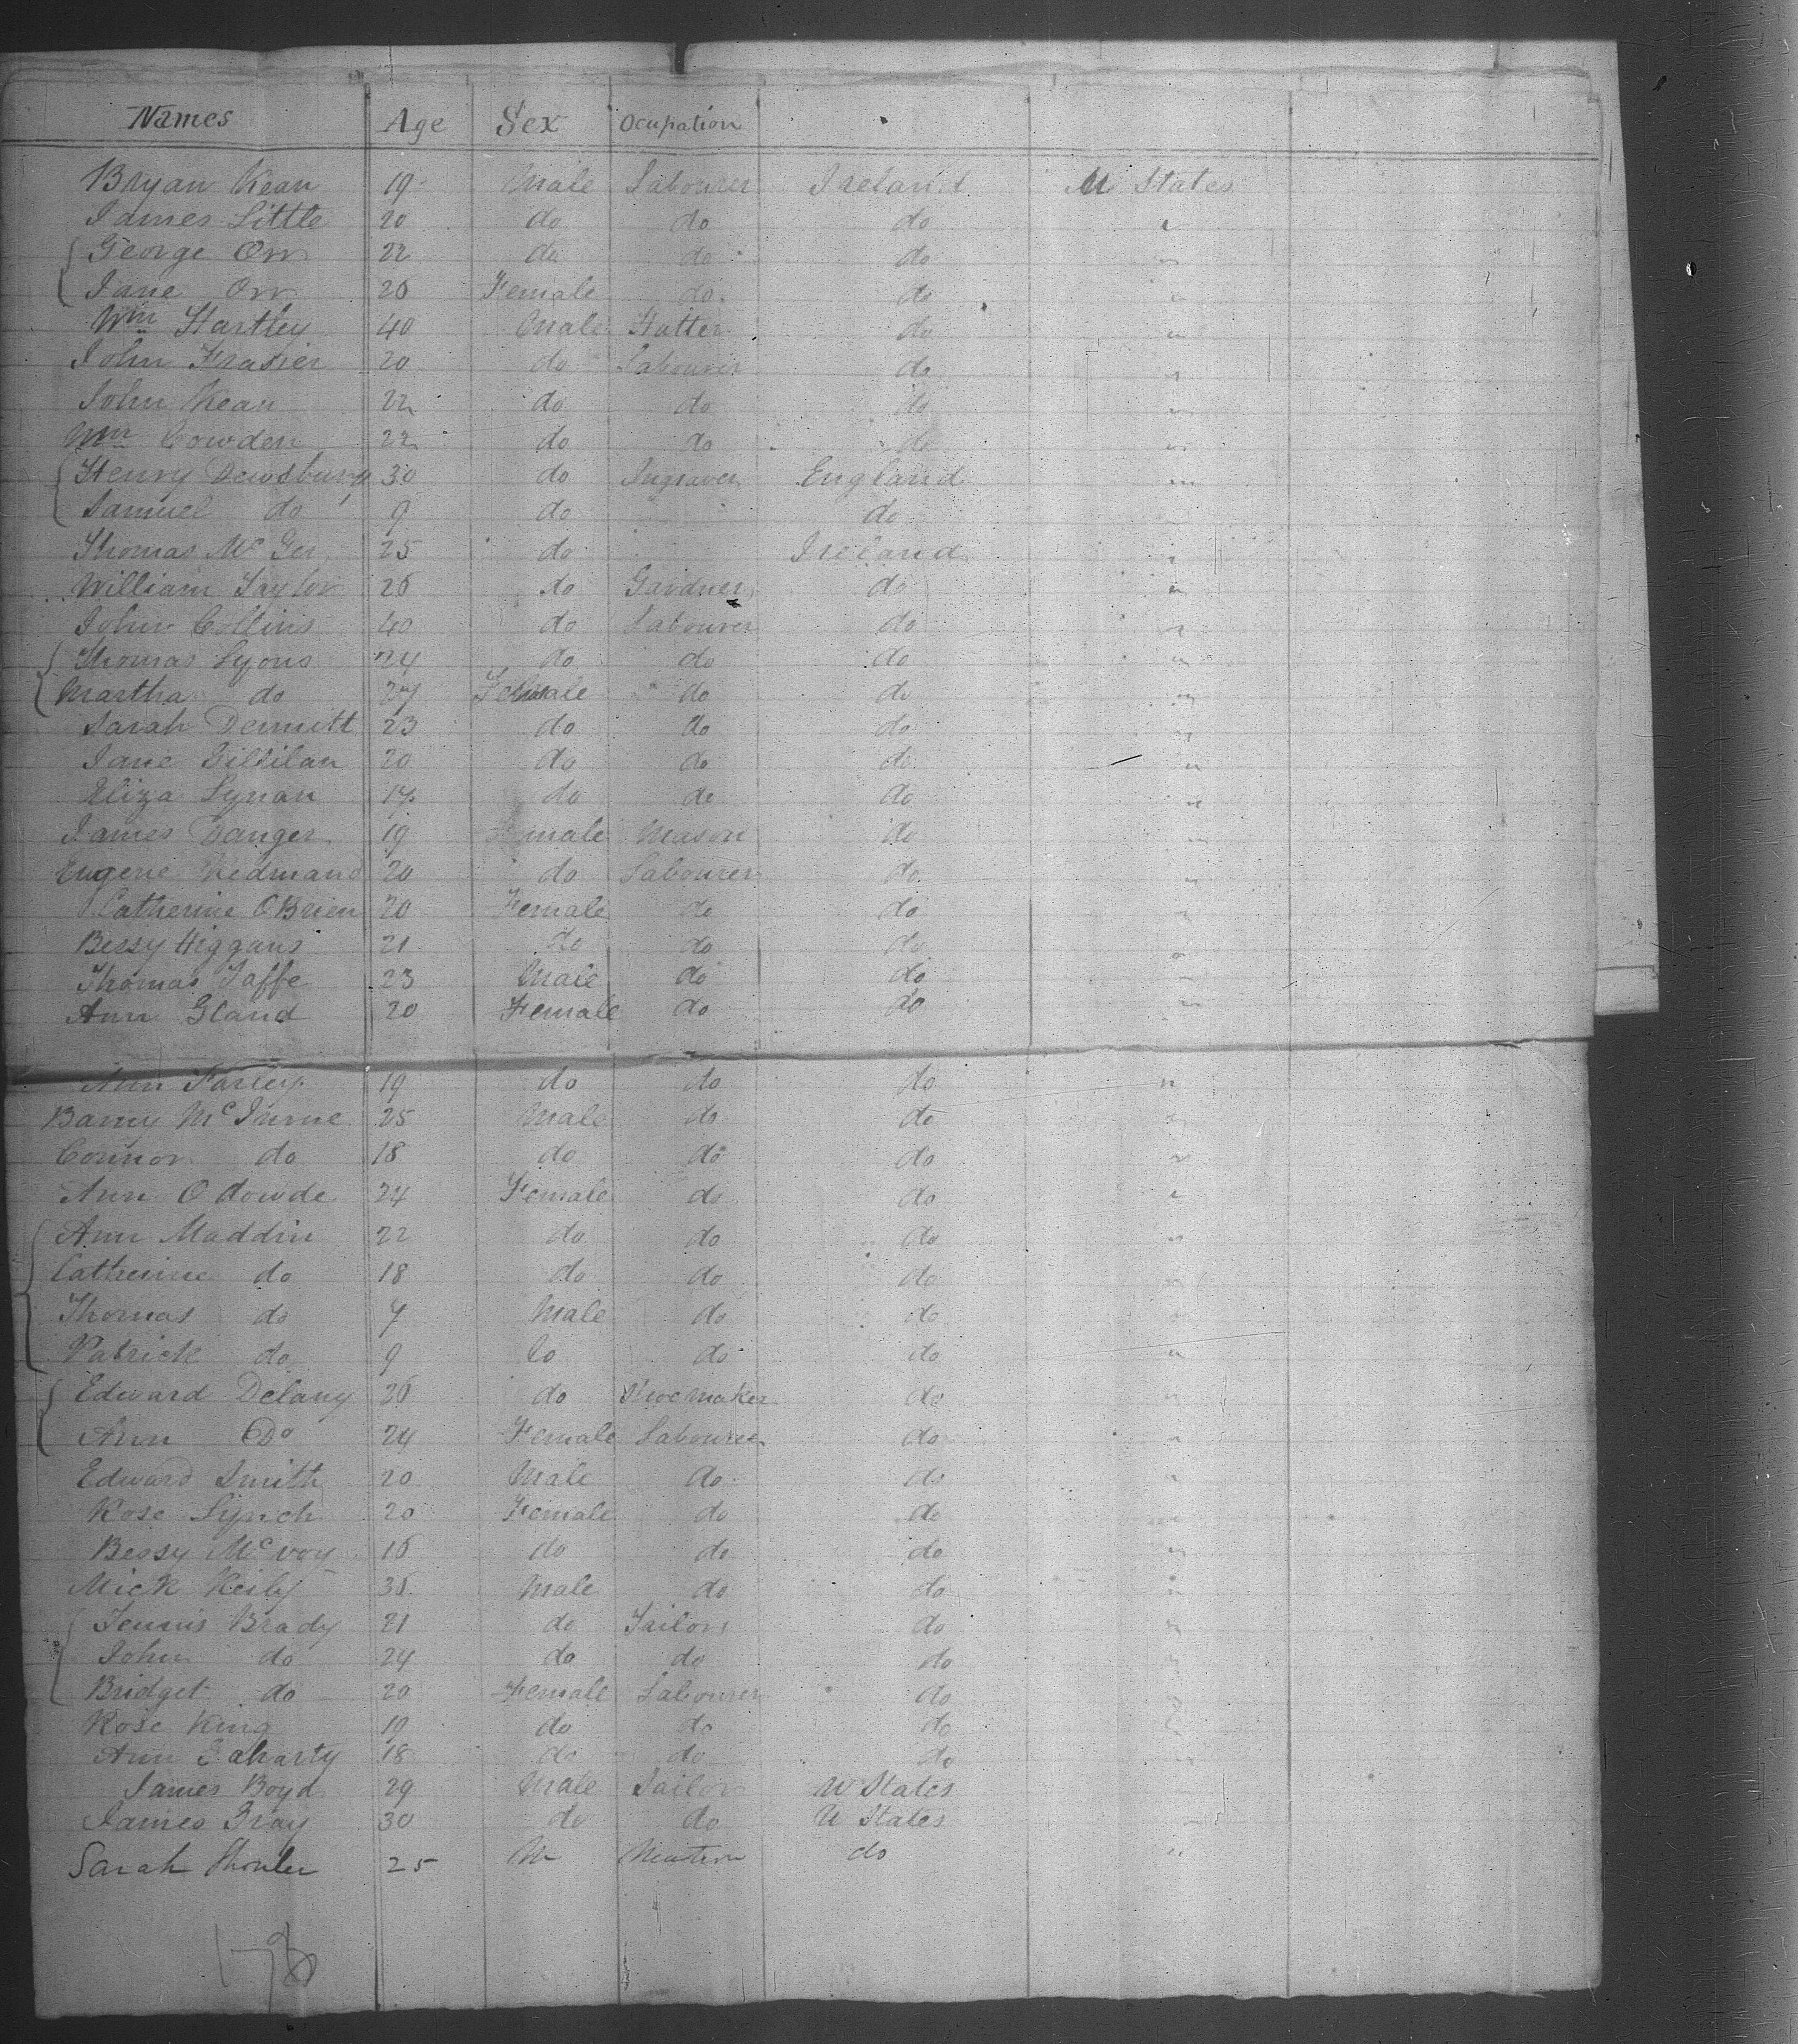 Names Age Sex Ocupation
Bryan Kean 19 Male Labourer Ireland U States
James Little 20 do do do "
George Orr 22 do do do "
Jane Orr 26 Female do do "
Wm Hartley 40 Male Hatter do "
John Frasier 20 do Labourer do "
John Kean 22 do do do "
Wm Cowden 22 do do do "
Henry Dewsbury 30 do Ingraver England "
Samuel do 9 do do "
Thomas Mc 25 do Ireland "
William Taylor 26 do Gardner do "
John Collins 40 do Labourer do "
Thomas Lyons 24 do do do "
Martha do 27 Female do do "
Sarah Dermitt 23 do do do "
Jane Gilfilan 20 do do do "
Eliza Lynan 17 do do do "
James Danger 19 male Mason do "
Eugene Redmand 20 do Labourer do "
Catherine O Brien 20 Female do do "
Bessy Higgans 21 do do do "
Thomas Taffe 23 Male do do "
Ann Gland 20 Female do do "
Ann Farley 19 do do do "
Barny Mc 25 Male do do "
Connor do 18 do do do "
Ann O dowde 24 Female do do "
Ann Maddin 22 do do do "
Catherine do 18 do do do "
Thomas do 7 Male do do "
Patrick do 9 do do do "
Edward Delany 36 do Shoemaker do "
Ann Do 24 Female Labourer do "
Edward Smith 20 Male do do "
Rose Lynch 20 Female do do "
Bessy Mc voy 16 do do do "
Mick Reily 36 Male do do "
Brady 21 do Tailor do "
John do 24 do do do "
Bridget do 20 Female Labourer do "
Rose King 19 do do do "
Ann 18 do do do "
James Boyd 29 Male Tailor U States
James Gray 30 do do U States "
Sarah 25 do "